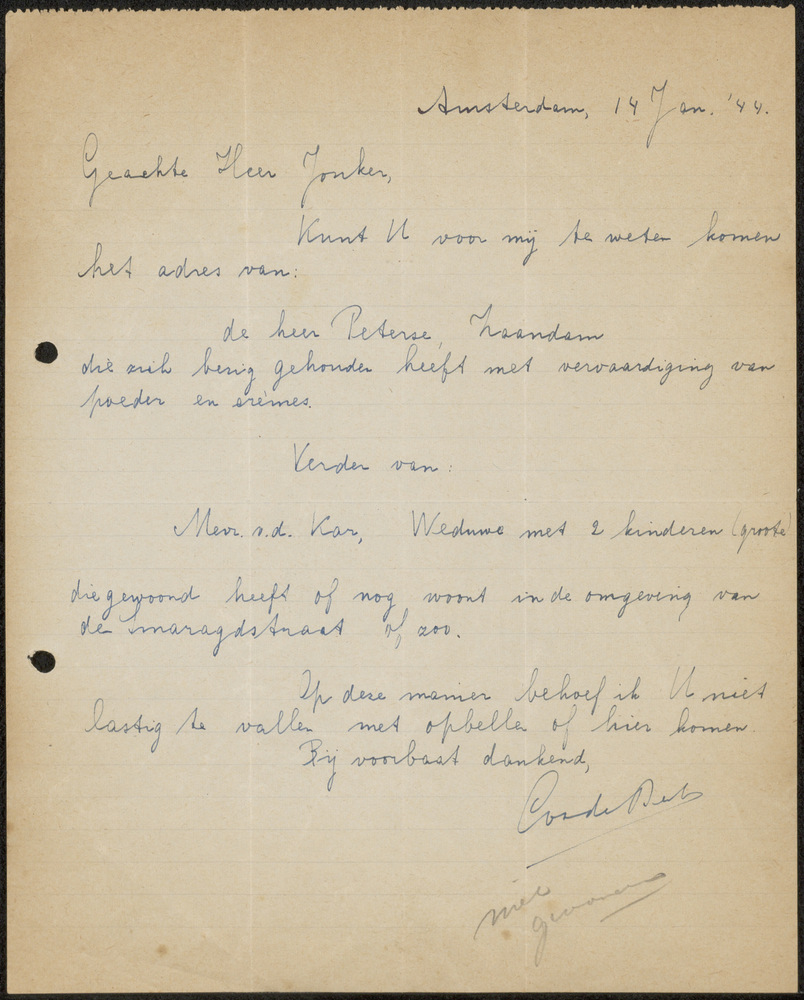 Amsterdam, 14 Jan. '44.
Geachte Heer Jonker,
Kunt U voor mij te weten komen
het adres van:
de heer Peterse, Zaandam
die zich bezig gehouden heeft met vervaardiging van
poeder en crèmes.
Verder van:
Mevr. v.d. Kar, Weduwe met 2 kinderen (groote)
die gewoond heeft of nog woont in de omgeving van
de Smaragdstraat of zoo.
Op deze manier behoef ik U niet
lastig te vallen met opbellen of hier komen.
Bij voorbaat dankend,
niet